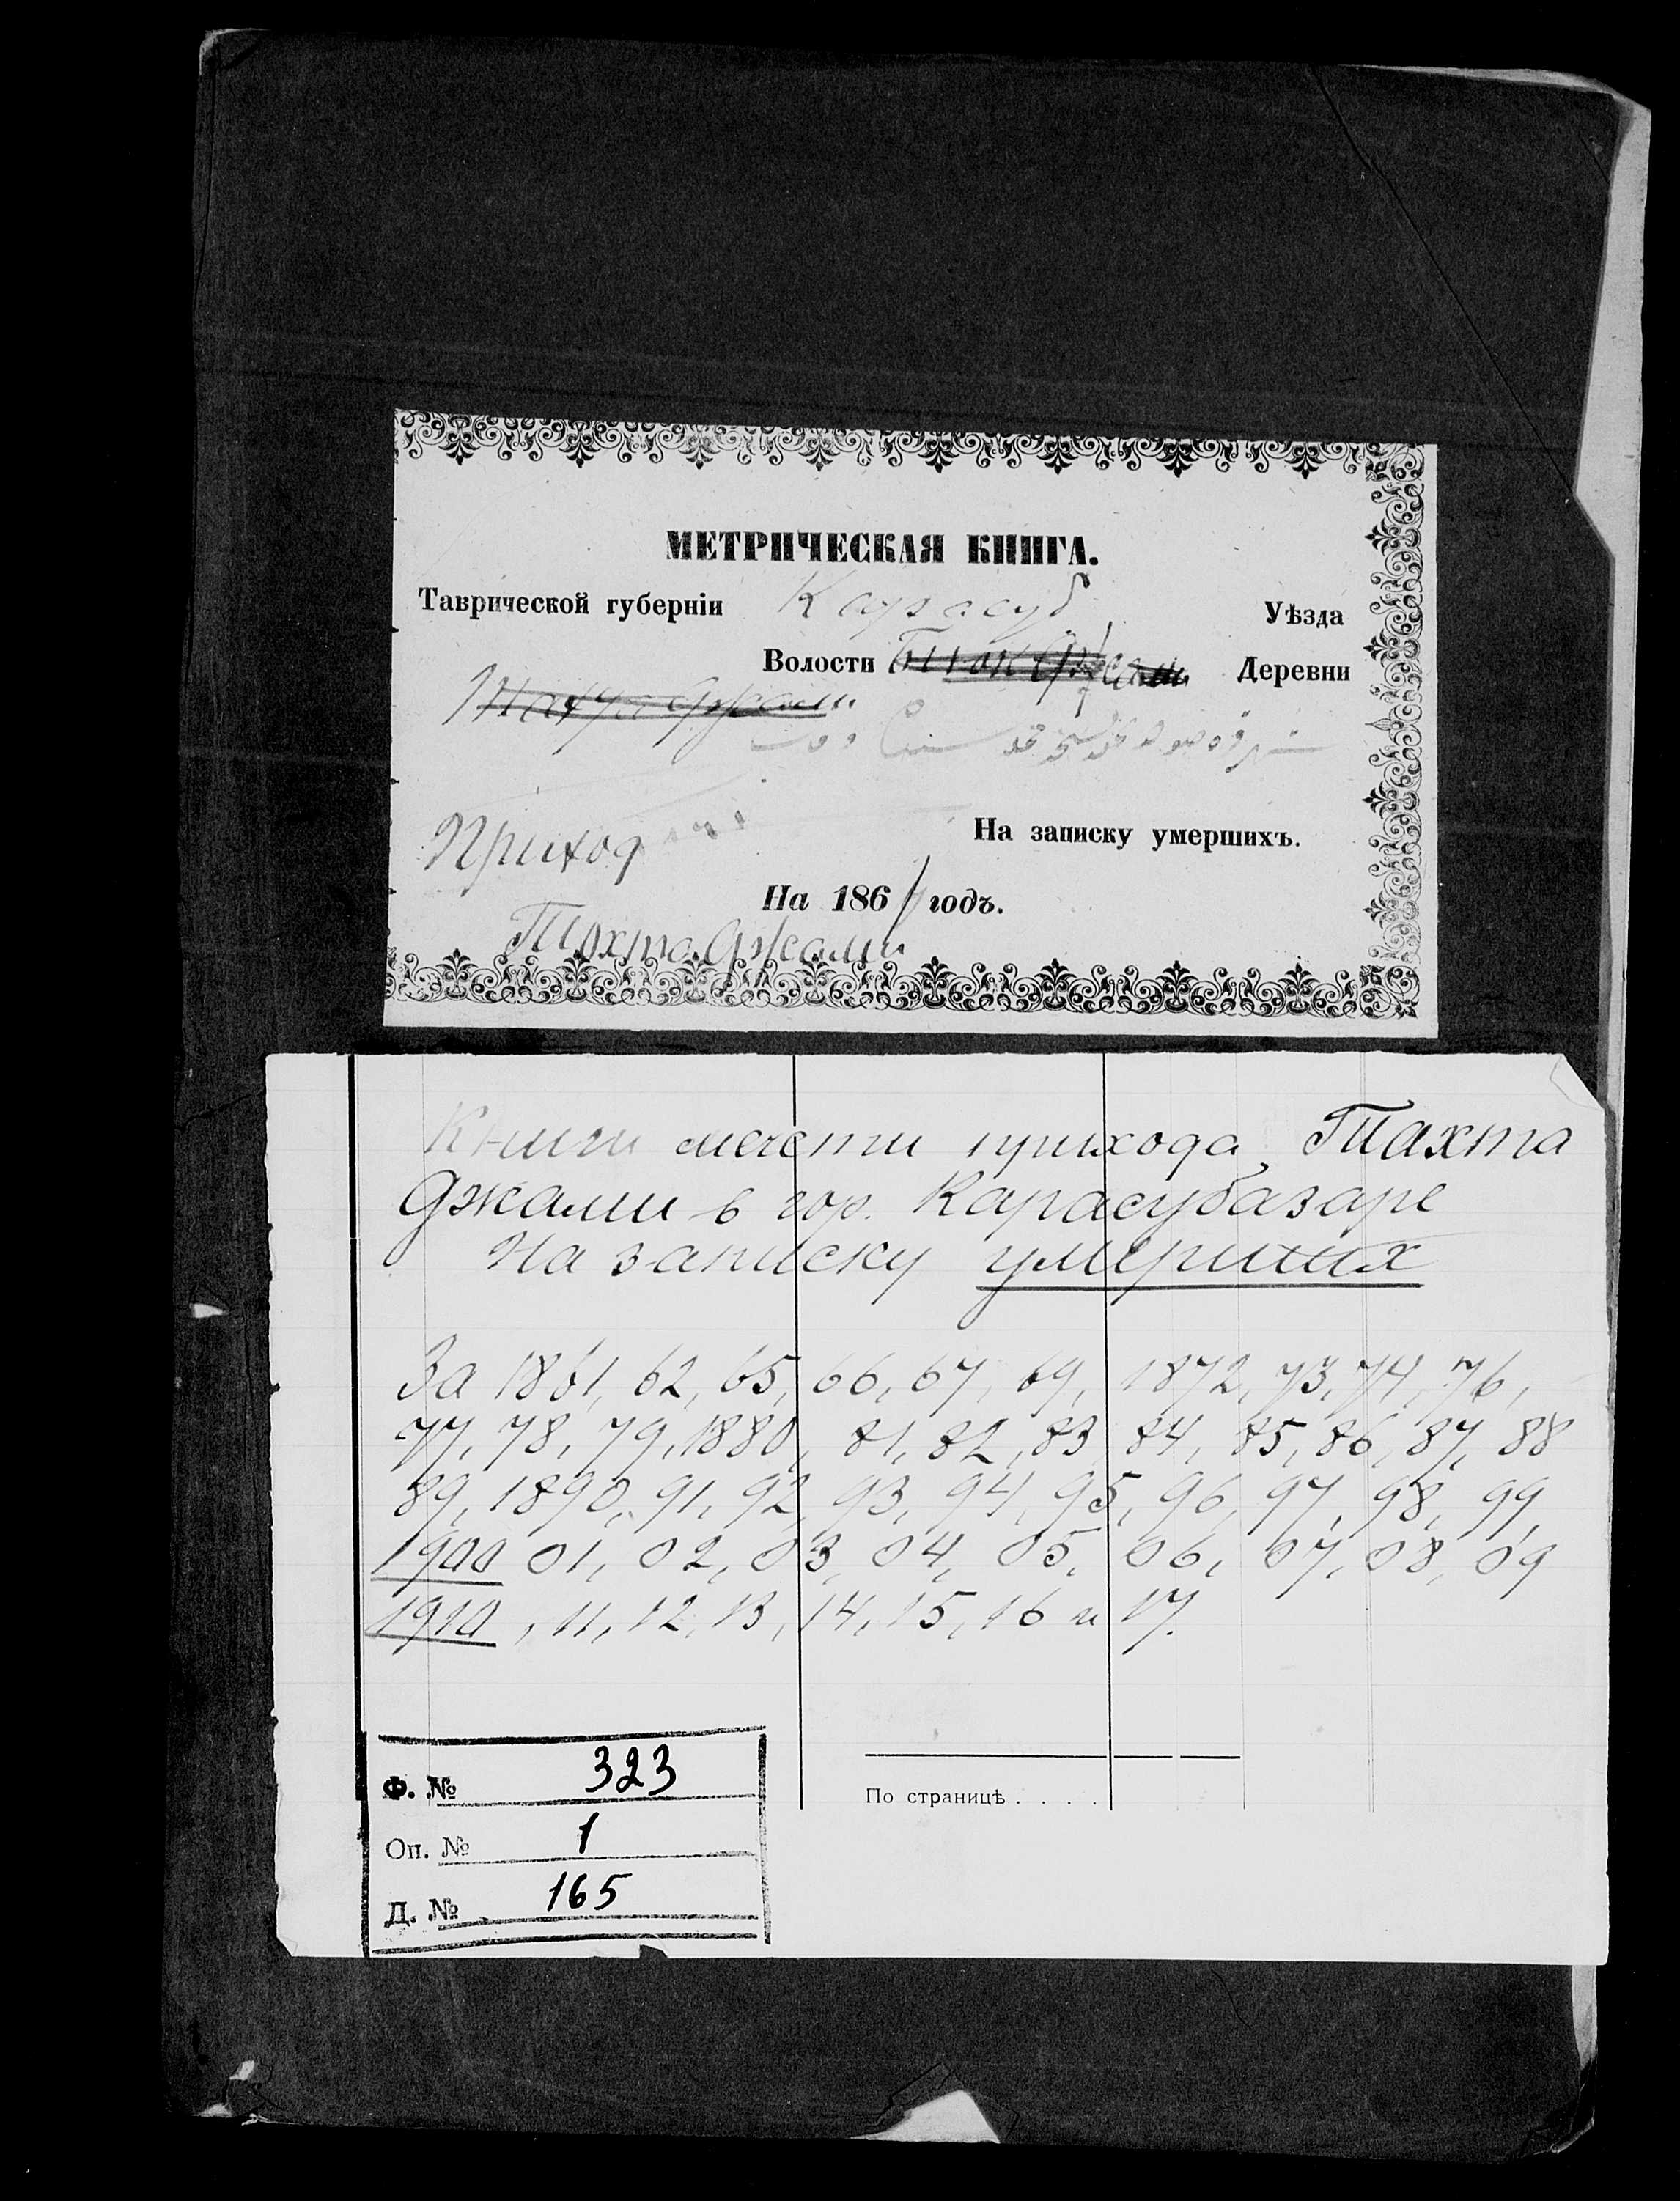 МЕТРИЧЕСКАЯ КНИГА.
Таврической губерніи Карасуб Уѣзда
Волости Деревни
Тахта Джами
На записку умершихъ.
Приход
На 1861 годъ.
Тахта Джами
Книги мечети прихода Тахта
Джами в гор. Карасубазаре
На записку умерших
За 1861, 62, 65, 66, 67, 69, 1872, 73, 74, 76,
77, 78, 79, 1880, 81, 82, 83, 84, 85, 86, 87, 88
89, 1890, 91, 92, 93, 94, 95, 96, 97, 98, 99,
1900 01, 02, 03, 04, 05, 06, 07, 08, 09
1910, 11, 12, 13, 14, 15, 16 и 17.
Ф. № 323
По страницѣ . . . .
Оп. № 1
Д. № 165